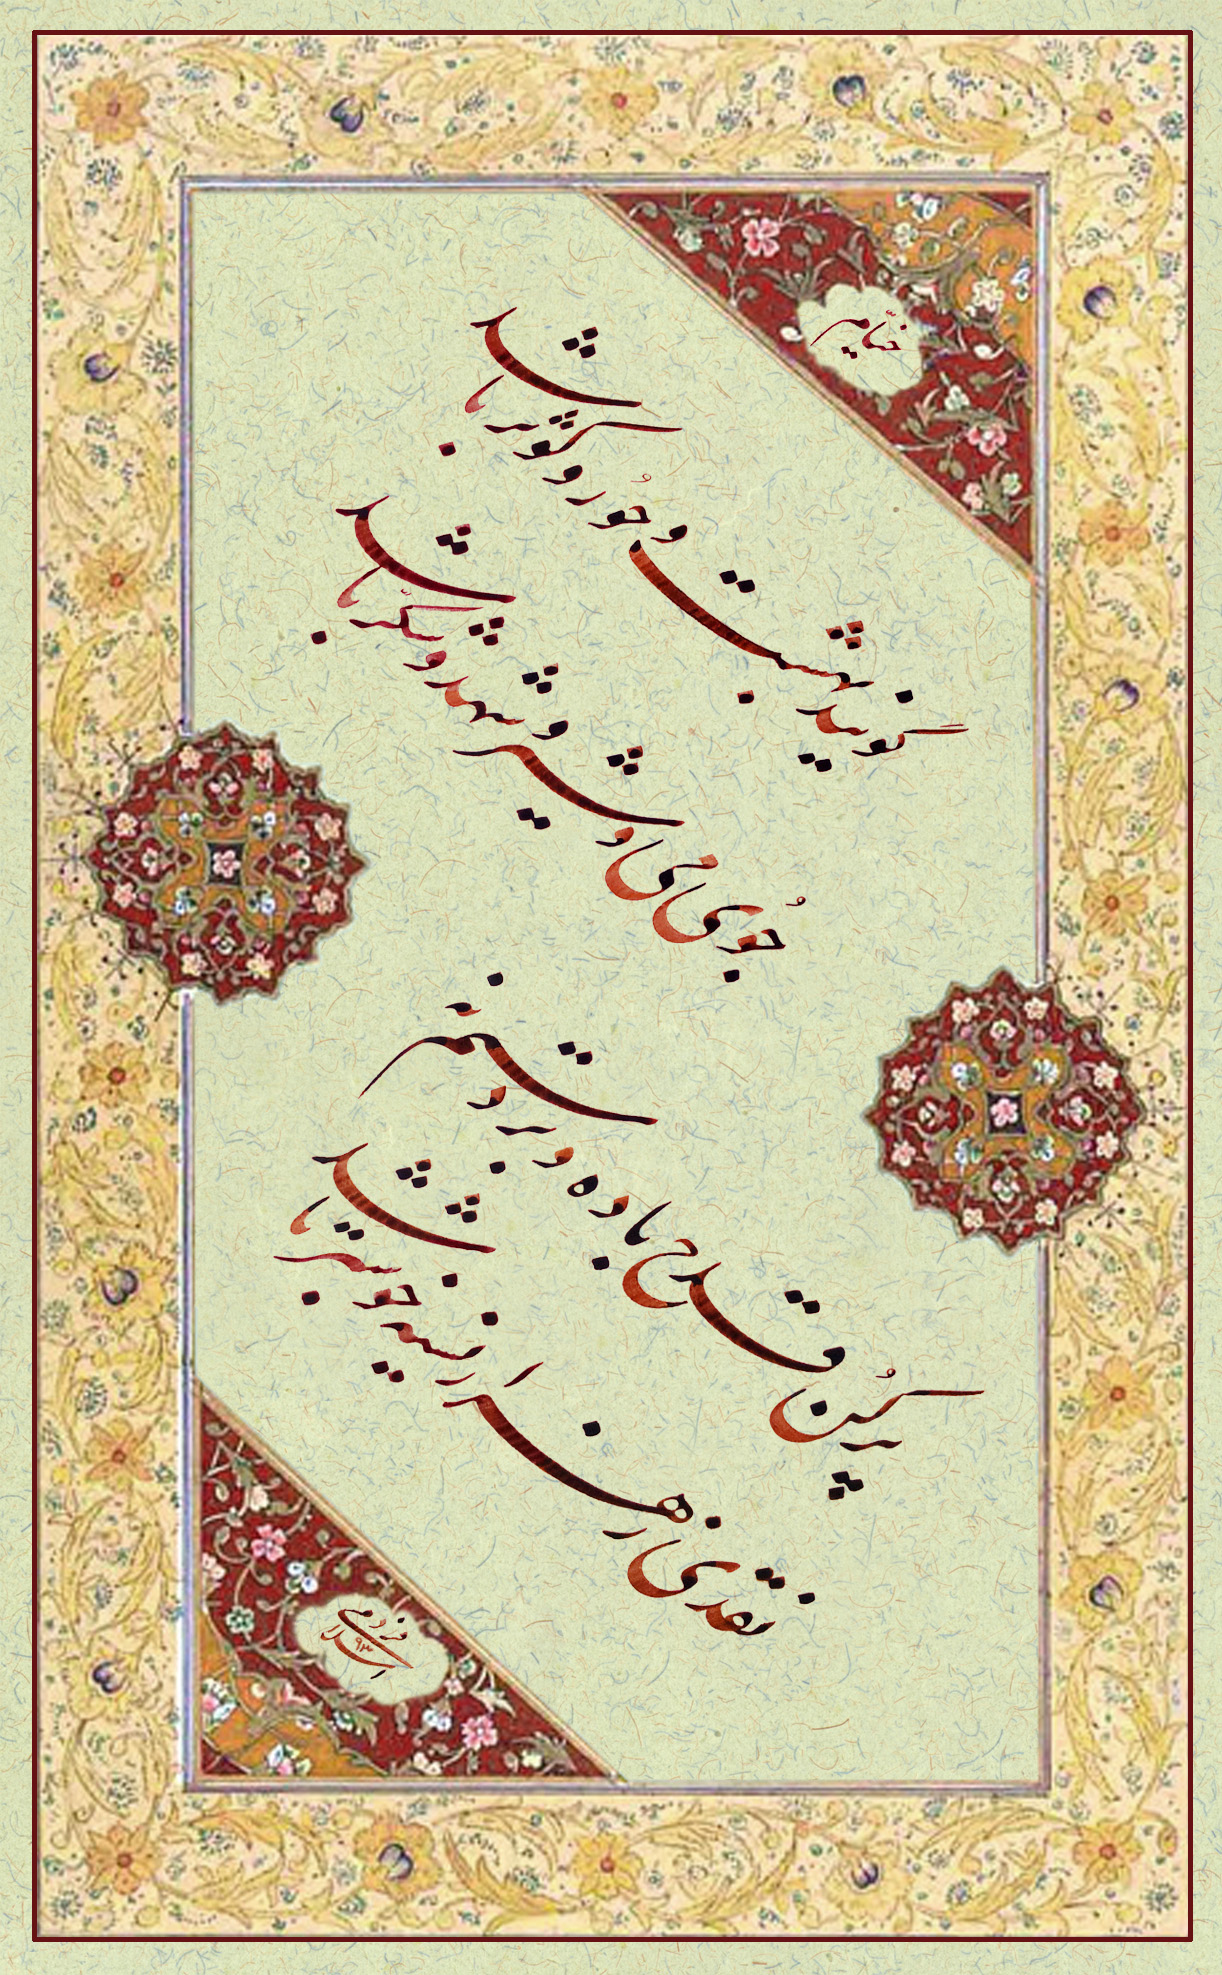 خیّام
گویند بهشت و حُور و کوثر باشد
جُوی می و شیر و شهد و شکّر باشد
پر کُن قدح باده و بر دستم نه
نقدی ز هزار نسیه خوشتر باشد
۹۳